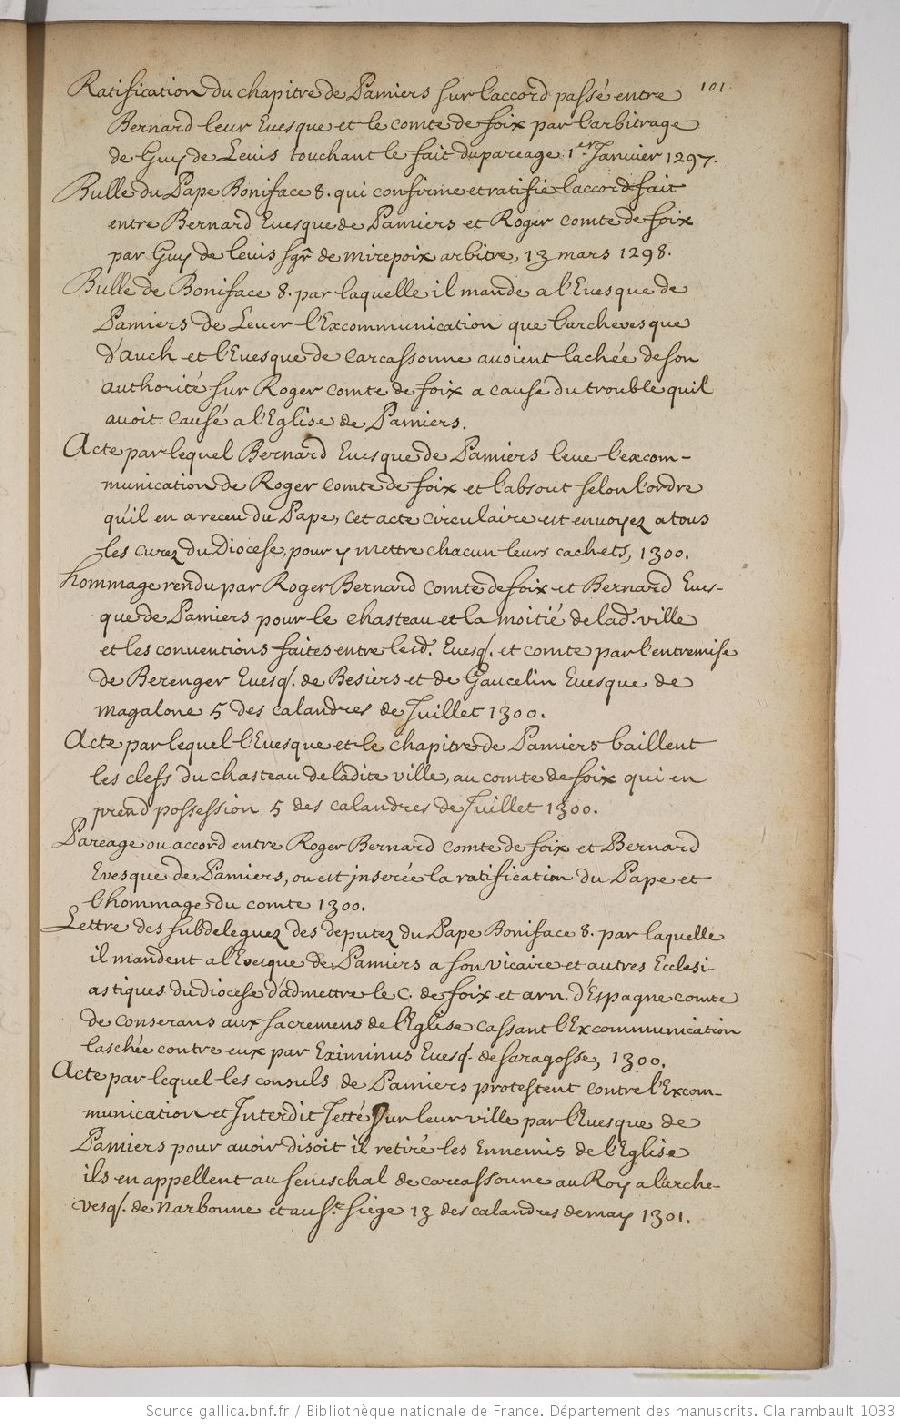 101.
Ratification du chapitre de Pamiers sur l'accord passé entre
Bernard leur Euesque et le comte de foix par l'arbitrage
de Guy de Leuis touchant le fait du pareage 1er Janvier 1297.
Bulle du Pape Boniface 8. qui confirme et ratifie l'accord fait
entre Bernard Euesque de Pamiers et Roger comte de foix
par Guy de leuis sgr de mirepoix arbitre, 13 mars 1298.
Bulle de Boniface 8. par laquelle il mande a l'Euesque de
Pamiers de Leuer l'Excommunication que l'archevesque
d'auch et l'Euesque de Carcassonne auoient lachée de son
authorité sur Roger comte de foix a cause du trouble quil
auoit causé a l'Eglise de Pamiers.
Acte par lequel Bernard Euesque de Pamiers leue l'excom-
munication de Roger comte de foix et l'absout selon l'ordre
qu'il en a receu du Pape, cet acte circulaire est envoyez a tous
les curez du Diocese pour y mettre chacun leurs cachets, 1300.
hommage rendu par Roger Bernard comte de foix et Bernard Eues-
que de Pamiers pour le chasteau et la moitié de lad. ville
et les conventions faites entre lesd. Euesq. et comte par l'entremise
de Berenger Euesq. de Besiers et de Gaucelin Euesque de
magalone 5 des calandres de Juillet 1300.
Acte par lequel l'Euesque et le chapitre de Pamiers baillent
les clefs du chasteau de ladite ville, au comte de foix qui en
prend possession 5 des calandres de Juillet 1300.
Pareage ou accord entre Roger Bernard comte de foix et Bernard
Evesque de Pamiers, ou est inserée la ratification du Pape et
l'hommage du comte 1300.
Lettre des subdeleguez des deputez du Pape Boniface 8. par laquelle
il mandent a l'Evesque de Pamiers a son vicaire et autres Ecclesi-
astiques du diocese d'admettre le C. de foix et arn. d'Espagne comte
de Conserans aux sacremens de l'Eglise cassant l'Excommunication
laschée contre eux par Eximinus Euesq. de saragosse, 1300.
Acte par lequel les consuls de Pamiers protestent contre l'Excom-
munication et Interdit Jetté sur leur ville par l'Euesque de
Pamiers pour avoir disoit il retiré les Ennemis de l'Eglise
ils en appellent au seneschal de carcassonne au Roy a l'arche-
vesq. de narbonne et au St. siege 13 des calandres de may 1301.
Source gallica.bnf.fr / Bibliothèque nationale de France. Département des manuscrits. Clairambault 1033